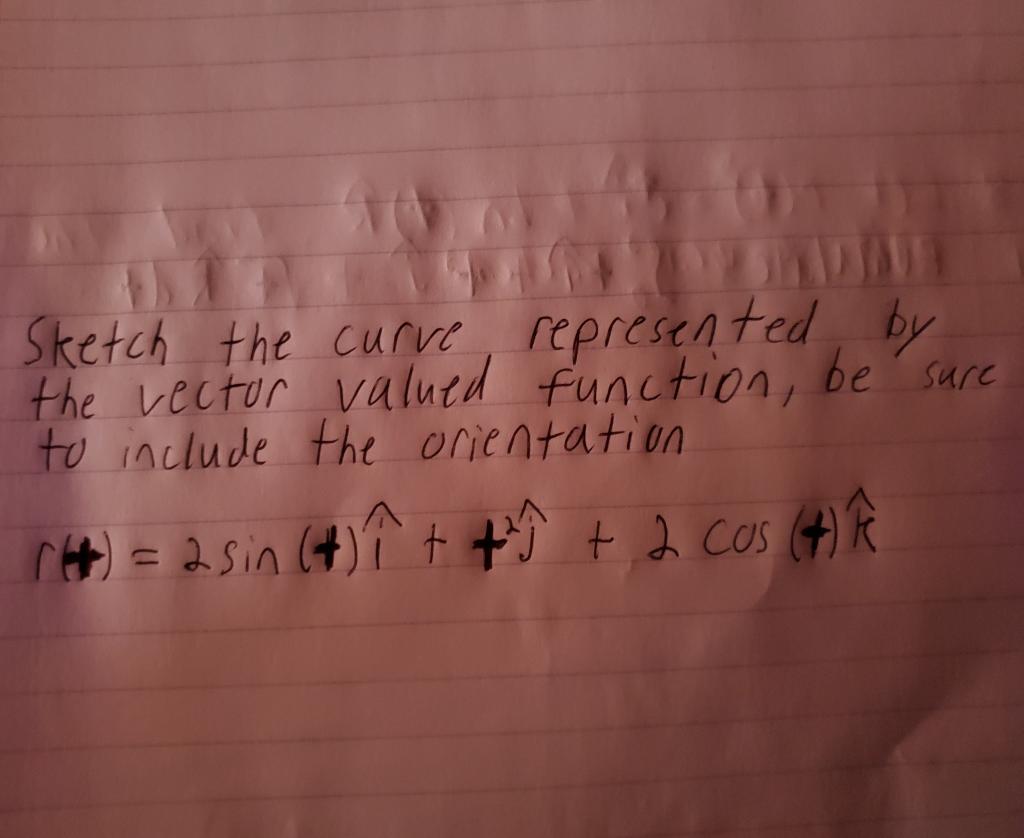 Sketch the curve represented by
the vector valued function, be sure
to include the orientation
r(t) = 2 sin (t) î + t² ĵ + 2 cos (t) k̂